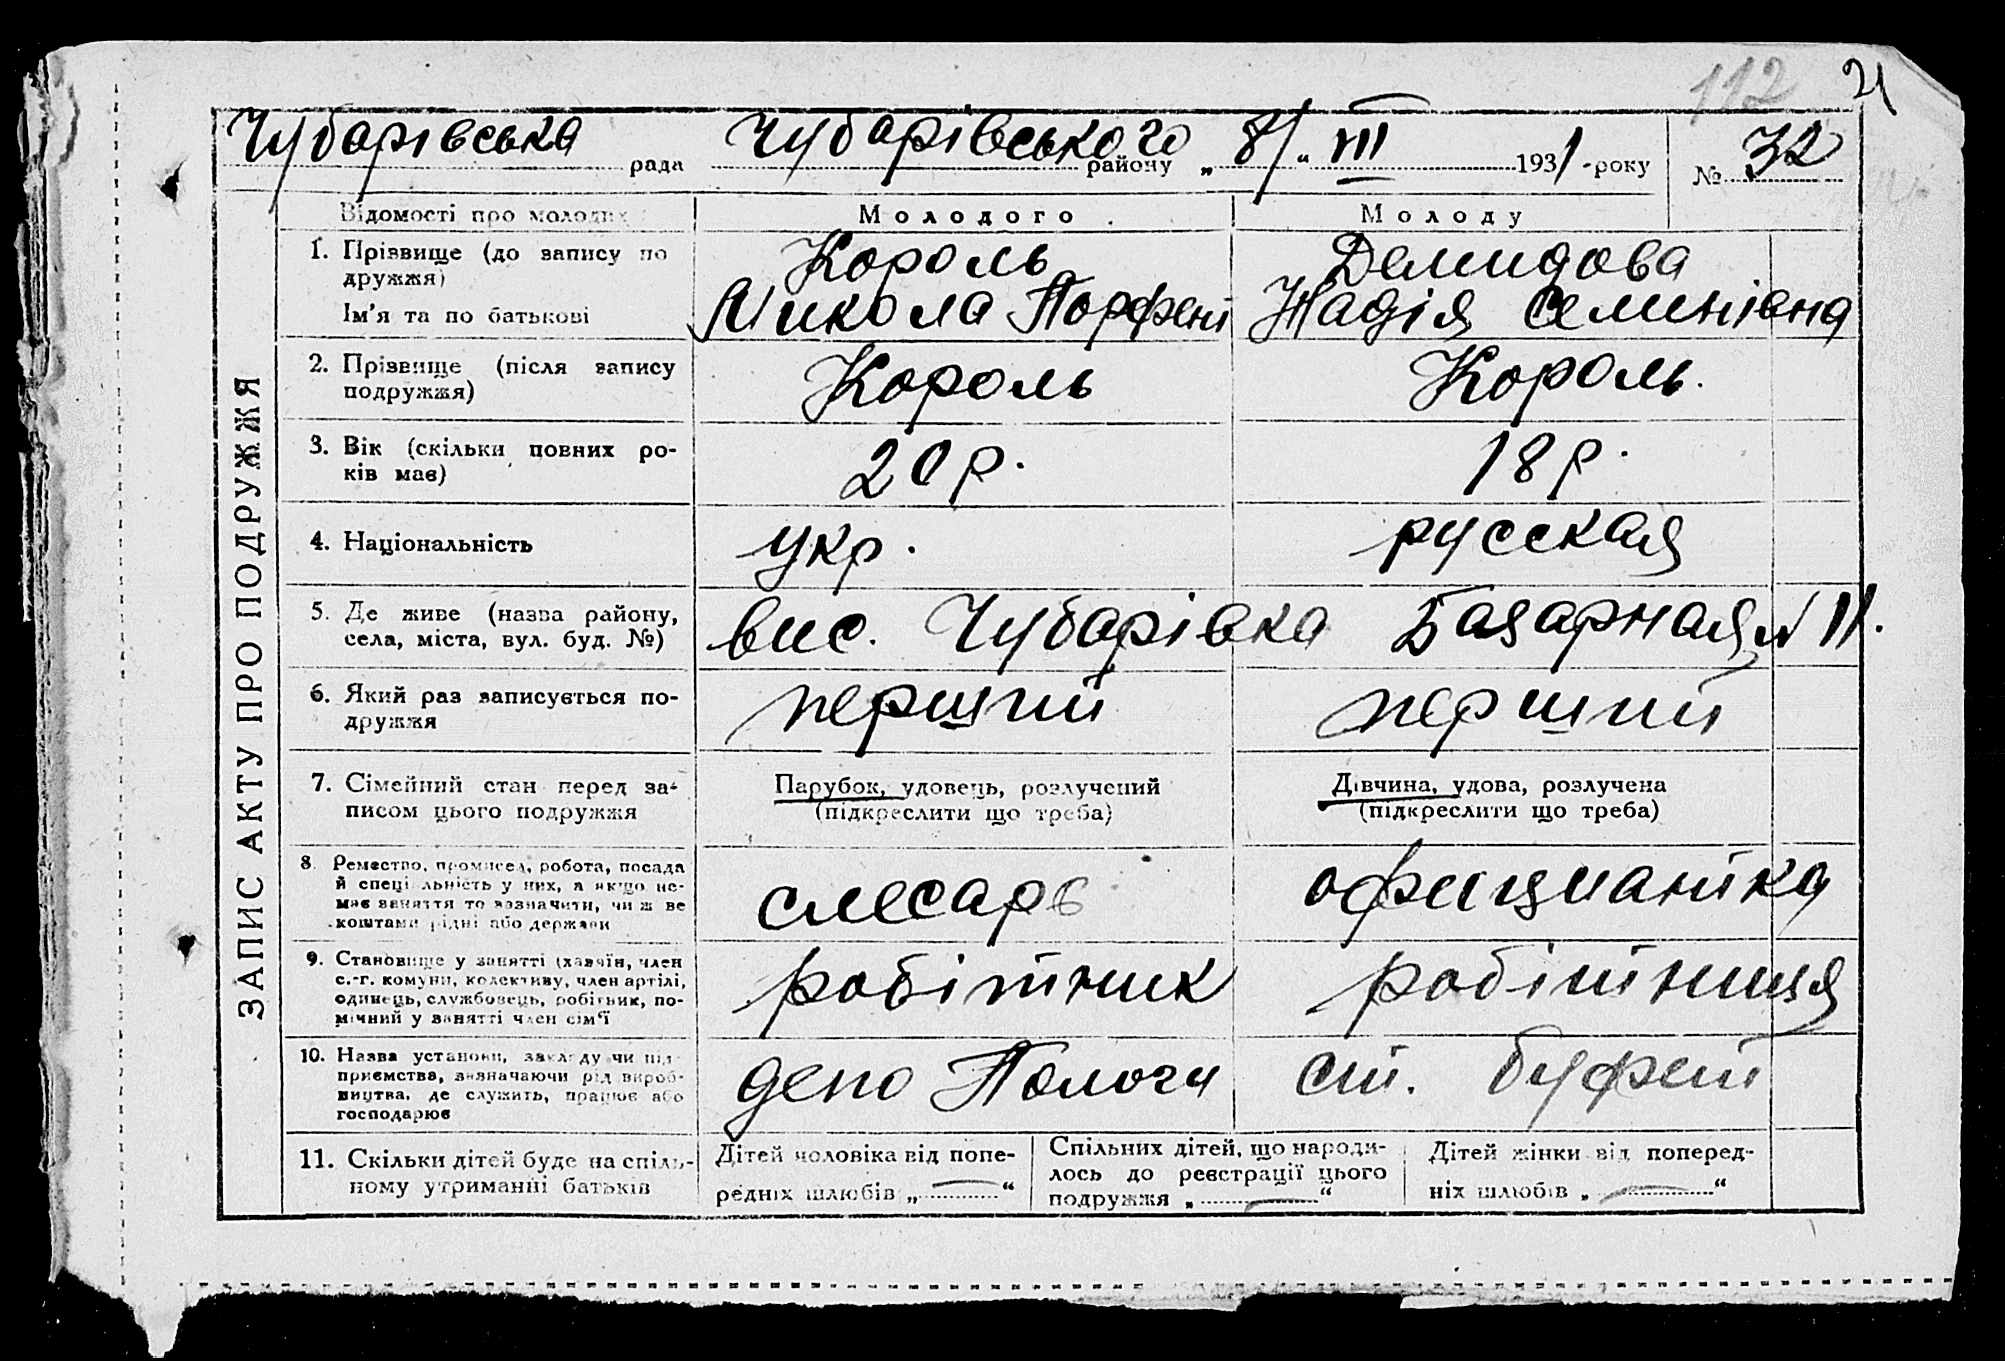 112 21
Чубарівська рада Чубарівського району „8/“ III 1931-року № 32
ЗАПИС АКТУ ПРО ПОДРУЖЖЯ
Відомості про молодих Молодого Молоду
1. Прізвище (до запису по Король Демидова
дружжя)
Ім'я та по батькові Микола Порфені Надія Семинівна
2. Прізвище (після запису Король Король.
подружжя)
3. Вік (скільки повних ро- 20 р. 18 р.
ків має)
4. Національність укр. русская
5. Де живе (назва району, вис. Чубарівка Базарная N 11.
села, міста, вул. буд. №)
6. Який раз записується по- перший перший
дружжя
7. Сімейний стан перед за- Парубок, удовець, розлучений Дівчина, удова, розлучена
писом цього подружжя (підкреслити що треба) (підкреслити що треба)
8. Ремество, промисел, робота, посада
й спеціальність у них, а якщо не-
має заняття то зазначити, чиїж ве слесарь официантка
коштами рідні або держави
9. Становище у занятті (хазяїн, член
с.-г. комуни, колективу, член артілі, робітник робітниця
одинець, службовець, робітник, по-
мічний у занятті член сім'ї
10. Назва установи, закладу чи під-
приємства, зазначаючи рід вироб- депо Пологи ст. буфет
ництва, де служить, працює або
господарює
11. Скільки дітей буде на спіль- Дітей чоловіка від попе- Спільних дітей, що народи- Дітей жінки від поперед-
ному утриманні батьків редніх шлюбів „—“ лось до реєстрації цього ніх шлюбів „—“
подружжя „—“